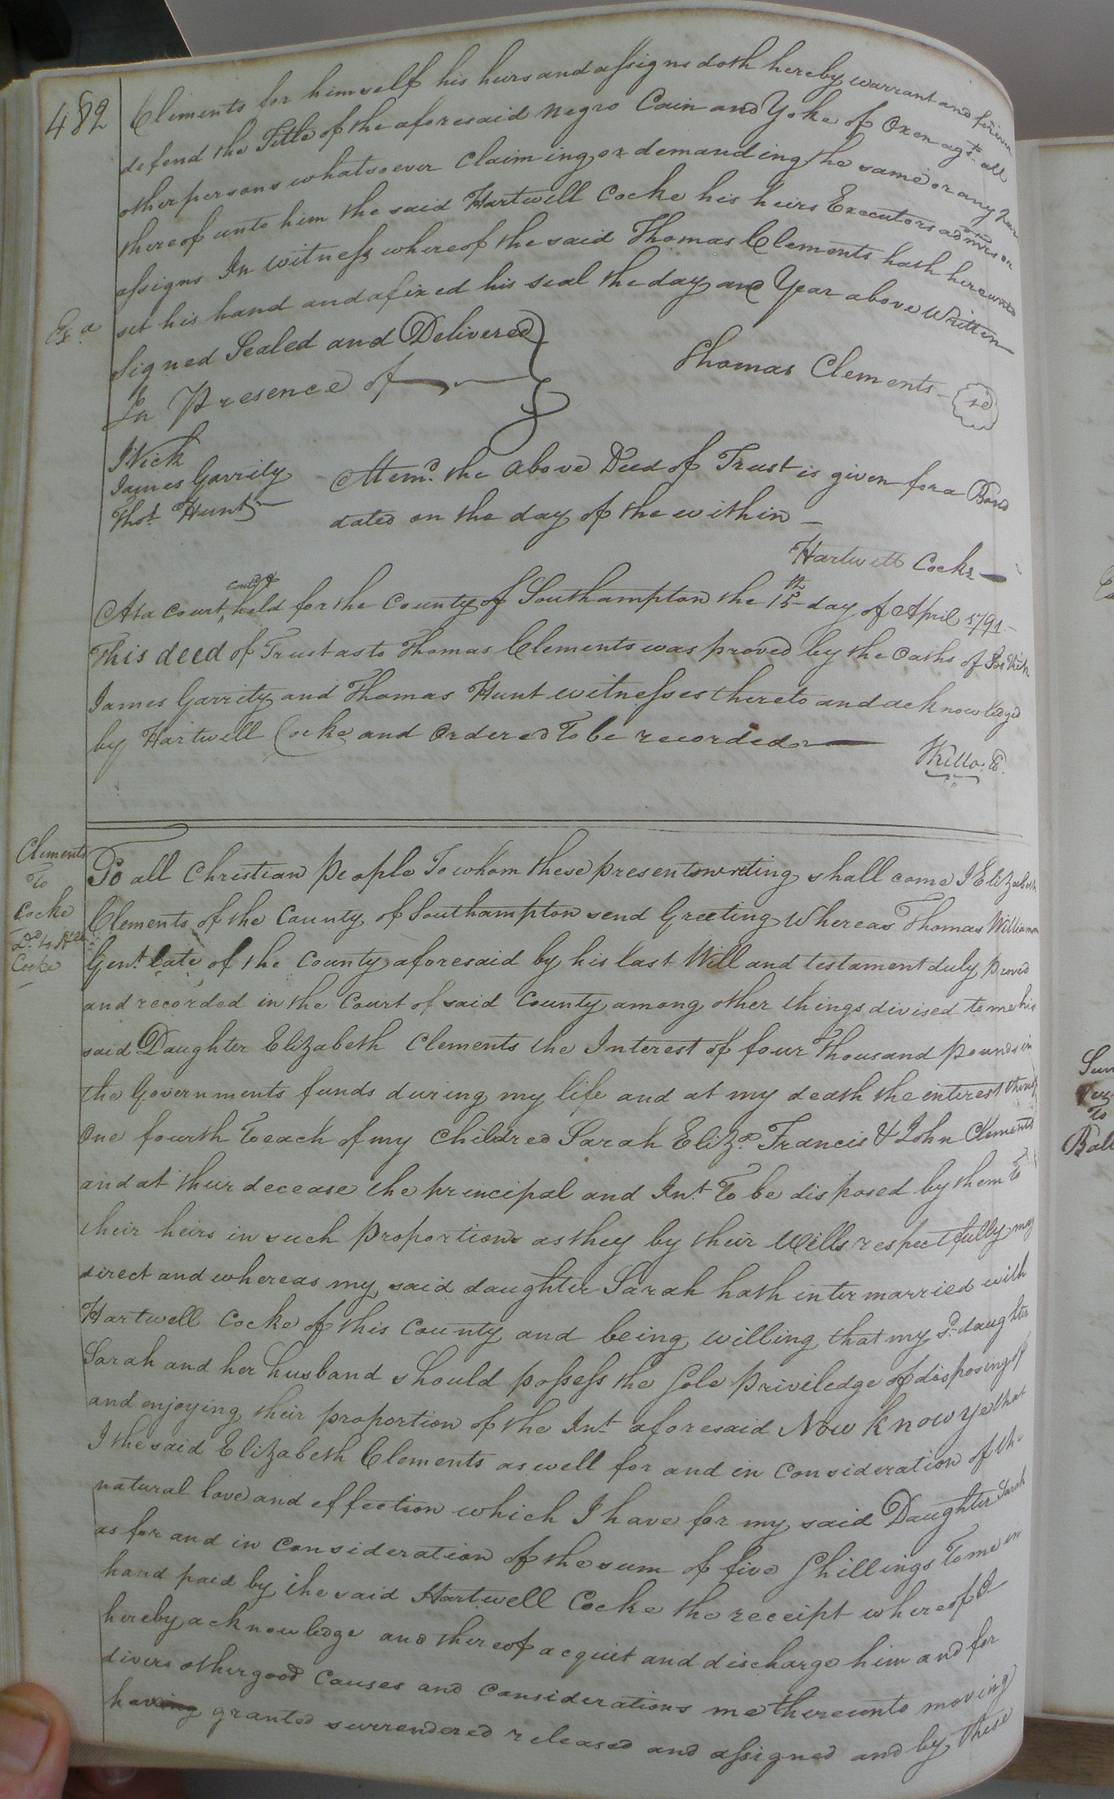 482
Clements for himself his heirs and assigns doth hereby warrant and forever
defend the Title of the aforesaid negro Cain and Yoke of Oxen agst. all
other persons whatsoever Claiming or demanding the same or any part
thereof unto him the said Hartwell Cocke his heirs Executors admrs or
assigns In witness whereof the said Thomas Clements hath hereunto
set his hand and afixed his seal the day and Year above Written
Exa
Signed Sealed and Delivered
In Presence of
Thomas Clements
James Garrity
Thos. Hunt
Mem. the above Deed of Trust is given for a Bond
dated on the day of the within
Hartwell Cocke
At a Court, contd & held for the County of Southampton the 15th day of April 1791
This deed of Trust as to Thomas Clements was proved by the oaths of
James Garrity and Thomas Hunt witnesses thereto and acknowledged
by Hartwell Cocke and Ordered To be recorded
Clements
To
Cocke
Cocke
To all Christian People To whom these present writing shall come I Elizabeth
Clements of the County of Southampton send Greeting Whereas Thomas Williamson
Gent. late of the County aforesaid by his last Will and testament duly proved
and recorded in the Court of said County among other things divised to me his
said Daughter Elizabeth Clements the Interest of four Thousand pounds in
the Governments funds during my life and at my death the interest thereof
One fourth To each of my Children Sarah Eliza. Francis & John Clements
and at their decease the principal and Int. To be disposed by them To
their heirs in such proportions as they by their Wills respectfully may
direct and whereas my said daughter Sarah hath intermarried with
Hartwell Cocke of this County and being willing that my sd. daughter
Sarah and her husband should possess the Sole Priviledge of disposing of
and enjoying their proportion of the Int. aforesaid Now know ye that
I the said Elizabeth Clements as well for and in Consideration of the
natural love and effection which I have for my said Daughter Sarah
as for and in Consideration of the sum of five Shillings To me in
hand paid by the said Hartwell Cocke the receipt whereof I
hereby acknowledge and thereof acquit and discharge him and for
divers other good Causes and Considerations me thereunto moving
having granted surrendered released and assigned and by these
To